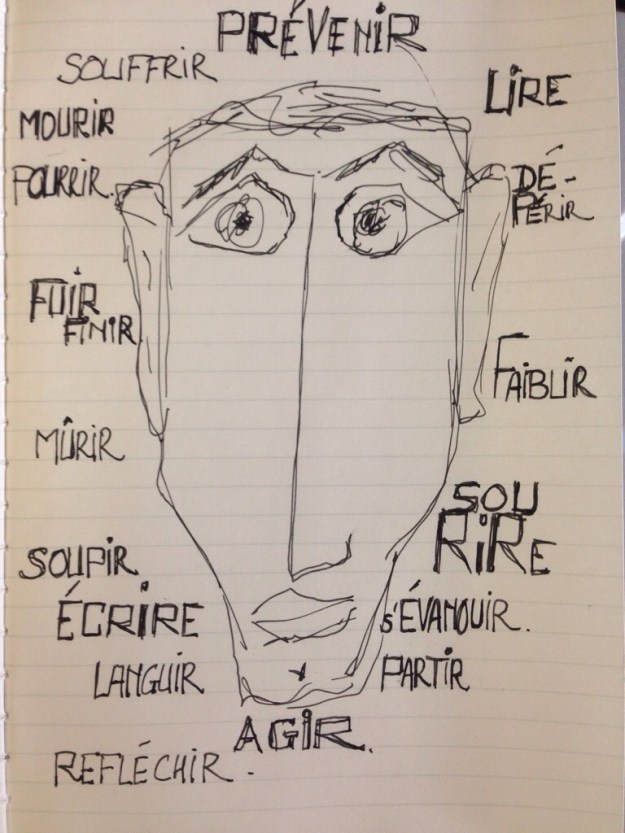 PRÉVENIR
SOUFFRIR
LIRE
MOURIR
POURRIR.
DÉ-
PÉRIR
FUIR
FINIR
FAIBLIR
MÛRIR
SOU
RIRE
SOUPIR
ÉCRIRE
s'ÉVANOUIR.
LANGUIR
PARTIR
AGIR.
REFLÉCHIR.